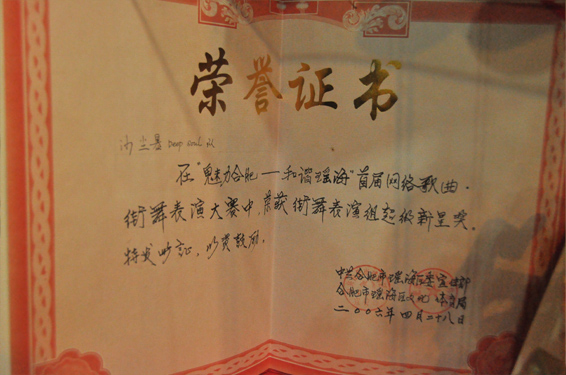 荣誉证书
Deep soul 队
在“魅力合肥——和谐瑶海”首届网络歌曲·
街舞表演大赛中,荣获街舞表演组超级新星奖。
特发此证,以资鼓励。
中共合肥市瑶海区委宣传部
合肥市瑶海区文化体育局
二00六年四月二十八日